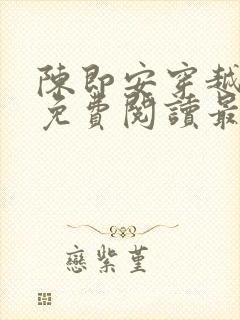 陳即安穿越
免費閱讀最
戀紫堇